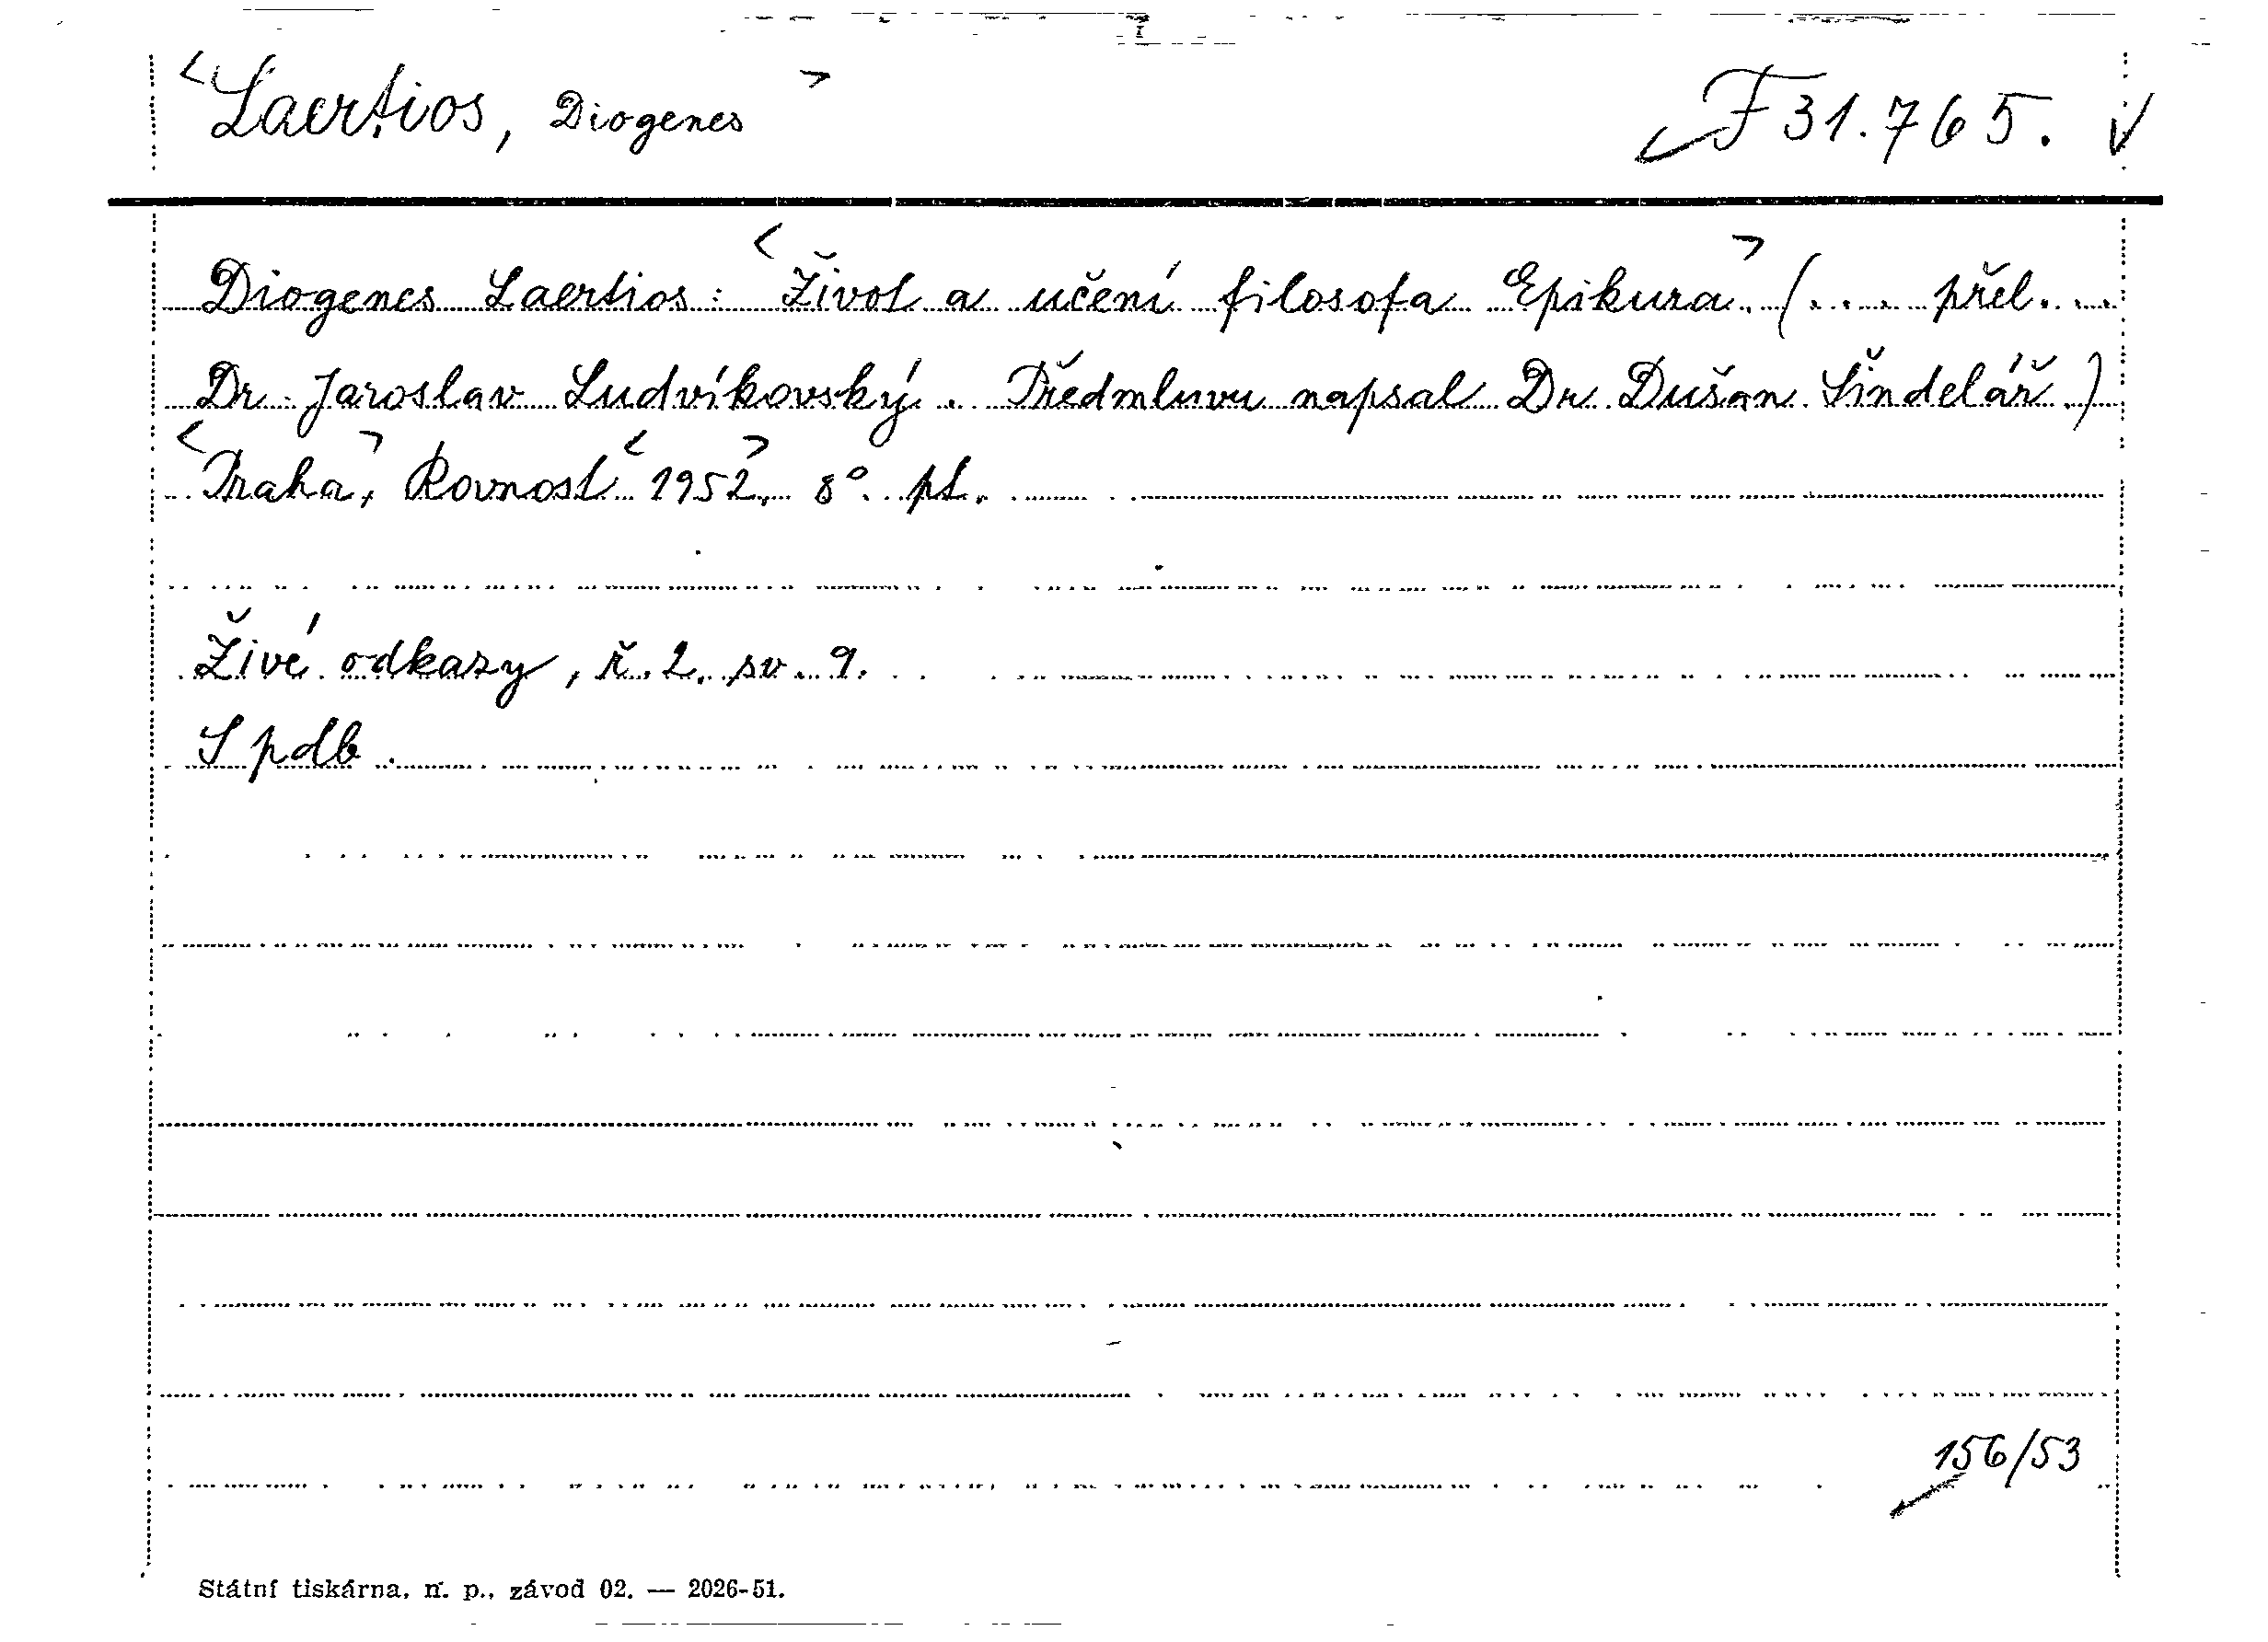 <Laertios, Diogenes> F 31.765. √
Diogenes Laertios: <Život a učení filosofa Epikura>. (.... přel. ..
Dr. Jaroslav Ludvíkovský. Předmluvu napsal Dr. Dušan Šindelář.)
<Praha>, Rovnost <1952>. 8°. pt.
Živé odkazy, ř. 2. sv. 9.
S pdb.
156/53
Státní tiskárna, n. p., závod 02. — 2026-51.